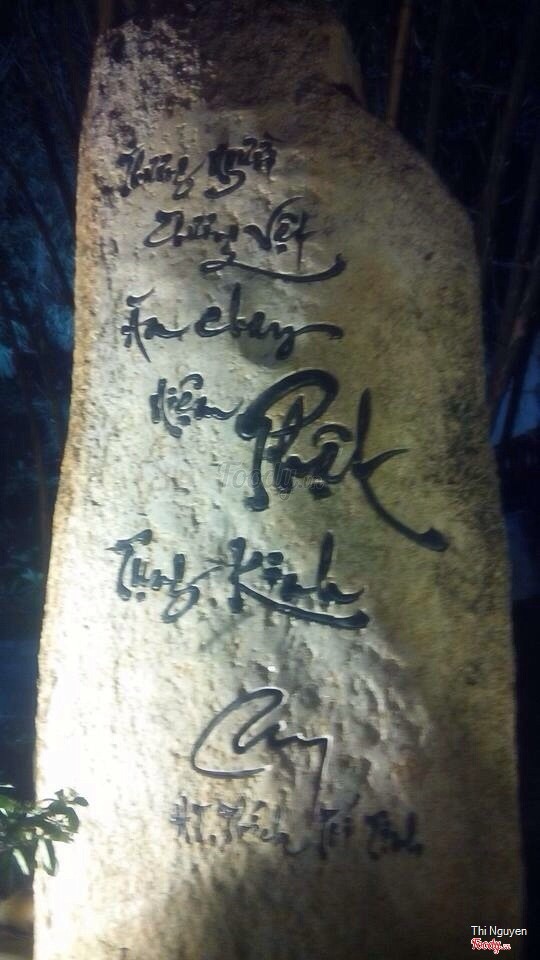 Thương người
Thương Vật
Ăn chay
Niệm Phật
Tụng Kinh
HT. Thích Trí Tịnh
Foody.vn
Thi Nguyen
Foody.vn